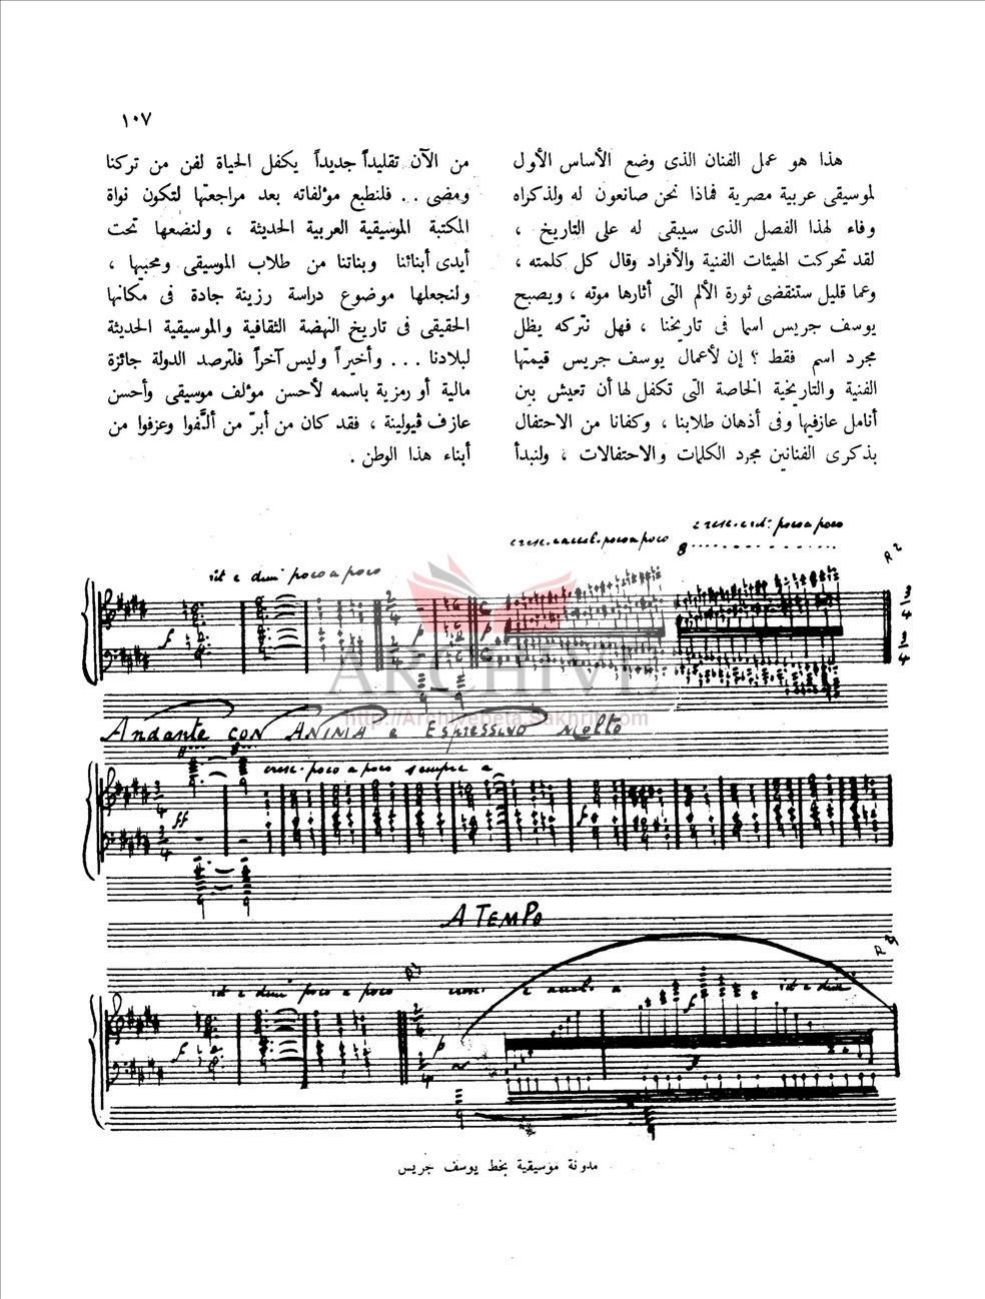 ١٠٧
هذا هو عمل الفنان الذى وضع الأساس الأول
لموسيقى عربية مصرية فماذا نحن صانعون له ولذكراه
وفاء لهذا الفصل الذى سيبقى له على التاريخ ،
لقد تحركت الهيئات الفنية والأفراد وقال كل كلمته ،
وعما قليل ستنقضى ثورة الألم التى أثارها موته ، ويصبح
يوسف جريس اسما فى تاريخنا ، فهل نتركه يظل
مجرد اسم فقط ؟ إن لأعمال يوسف جريس قيمتها
الفنية والتاريخية الخاصة التى تكفل لها أن تعيش بين
أنامل عازفيها وفى أذهان طلابنا ، وكفانا من الاحتفال
بذكرى الفنانين مجرد الكلمات والاحتفالات ، ولنبدأ
من الآن تقليداً جديداً يكفل الحياة لفن من تركنا
ومضى .. فلنطبع مؤلفاته بعد مراجعتها لتكون نواة
المكتبة الموسيقية العربية الحديثة ، ولنضعها تحت
أيدى أبنائنا وبناتنا من طلاب الموسيقى ومحبيها ،
ولنجعلها موضوع دراسة رزينة جادة فى مكانها
الحقيقى فى تاريخ النهضة الثقافية والموسيقية الحديثة
لبلادنا ... وأخيراً وليس آخراً فلترصد الدولة جائزة
مالية أو رمزية باسمه لأحسن مؤلف موسيقى وأحسن
عازف ڤيولينة ، فقد كان من أبرّ من ألَّفوا وعزفوا من
أبناء هذا الوطن .
cresc. e rit. poco a poco
cresc. e accel. poco a poco
8
rit e dim poco a poco
f
p
p
3/4
3/4
ARCHIVE
http://Archivebeta.Sakhrit.com
Andante CON ANIMA e Espressivo Molto
cresc. poco a poco sempre a
3/4
ff
f
3/4
A TEMPO
rit e dim poco a poco
cresc. e accel. a
rit e dim
f
p
f
مدونة موسيقية بخط يوسف جريس